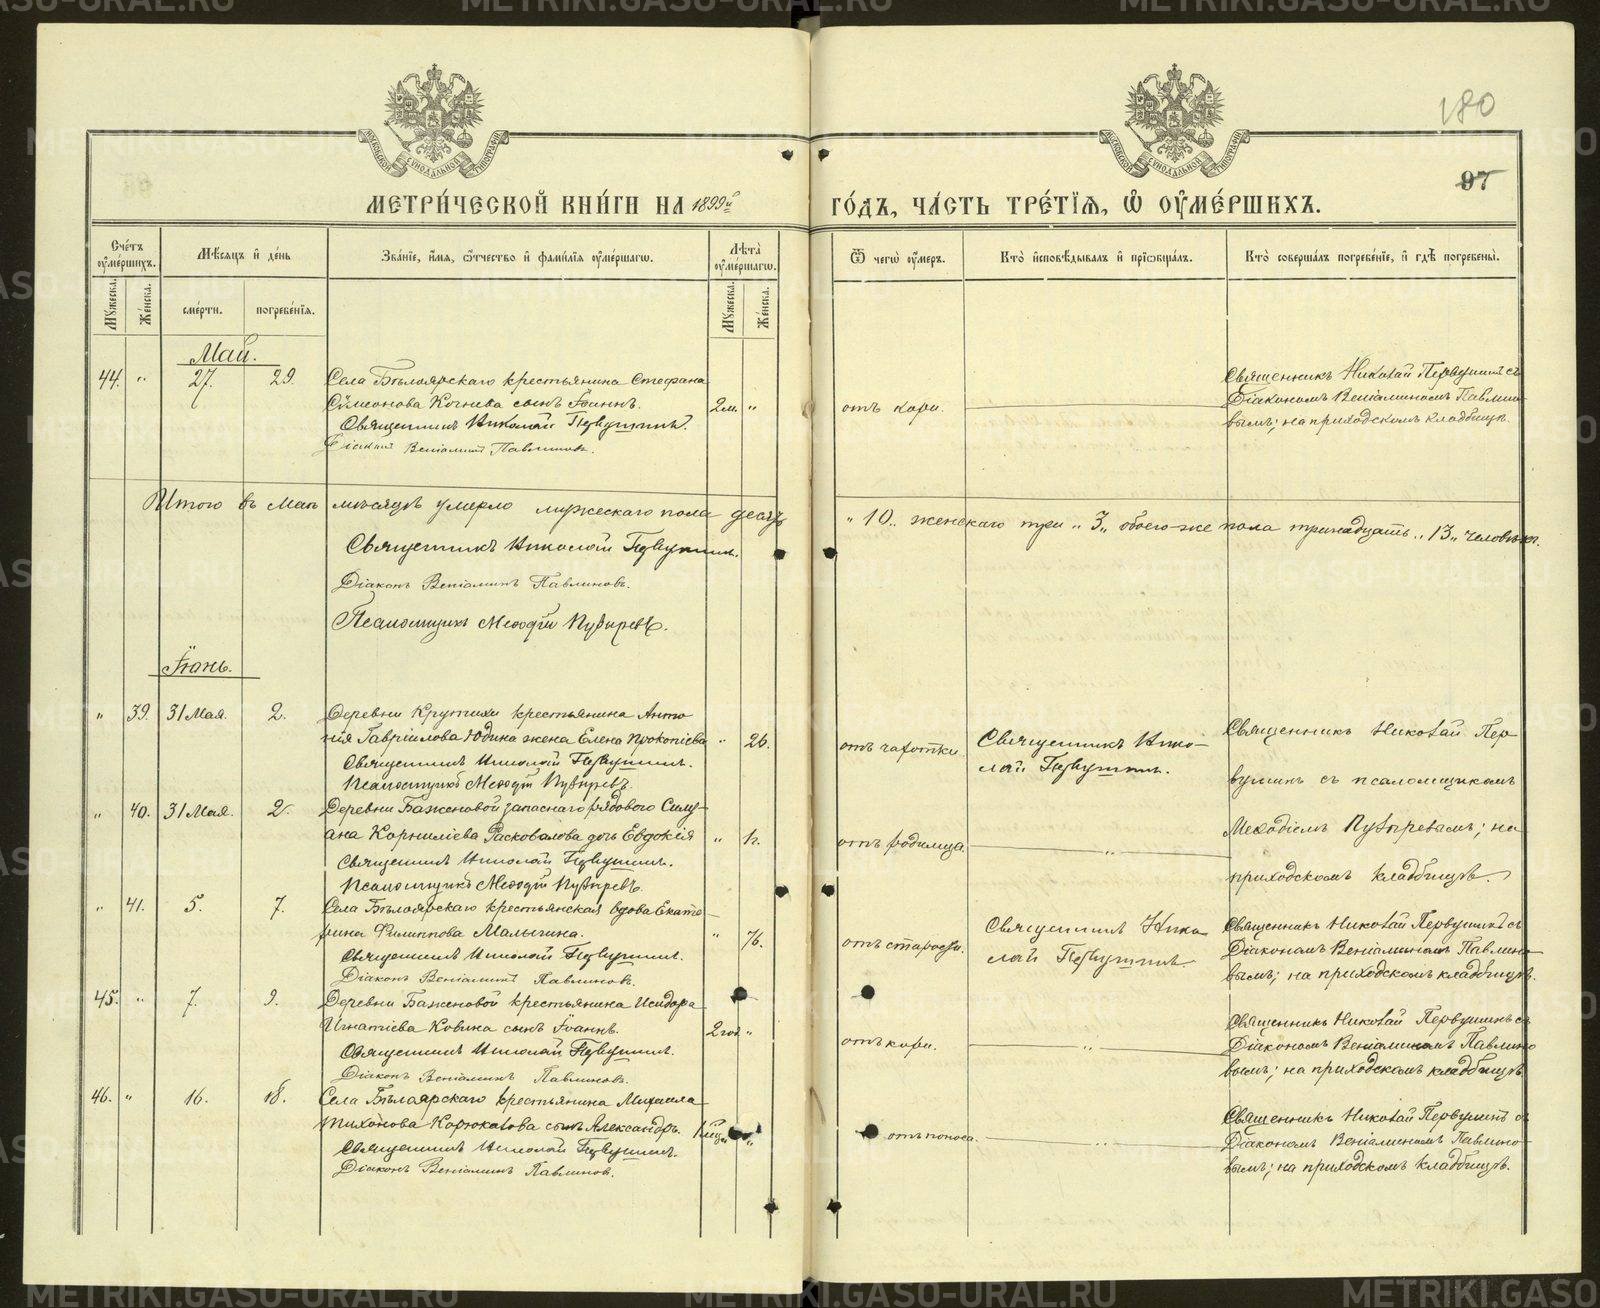 METRIKI.GASO-URAL.RU
180
97
МОСКОВСКОЙ СѴНОДАЛЬНОЙ ТИПОГРАФІИ
МЕТРИ́ЧЕСКОЙ КНИ́ГИ НА 1899й
ГО́ДЪ, ЧА́СТЬ ТРЕ́ТІЯ, Ѡ҆ ОУ҆МЕ́РШИХЪ.
Сче́тъ оу҆ме́ршихъ.
Мꙋ́жеска.
Же́нска.
Мѣ́сяцъ и҆ де́нь
сме́рти.
погребе́нія.
Зва́ніе, и҆́мя, ѻ҆́тчество и҆ фами́лія оу҆ме́ршагѡ.
Лѣта̀ оу҆ме́ршагѡ.
Мꙋ́жеска.
Же́нска.
Ѿ чегѡ̀ оу҆́меръ.
Кто̀ и҆сповѣ́дывалъ и҆ прїѻбща́лъ.
Кто̀ соверша́лъ погребе́ніе, и҆ гдѣ̀ погребены̀.
Май.
44. " 27. 29. Села Бѣлоярскаго крестьянина Стефана
Сѵмеонова Кочнева сынъ Іоаннъ. 2м. " отъ кори.
Священникъ Николай Первушинъ.
Діаконъ Веніаминъ Павлиновъ.
Священникъ Николай Первушинъ съ
Діакономъ Веніаминомъ Павлино-
вымъ; на приходскомъ кладбищѣ.
Итого въ Маѣ мѣсяцѣ умерло мужескаго пола десять
" 10 „ женскаго три „ 3 „ обоего-же пола тринадцать „ 13 „ человѣкъ.
Священникъ Николай Первушинъ.
Діаконъ Веніаминъ Павлиновъ.
Псаломщикъ Меѳодій Пузыревъ.
Іюнь.
" 39. 31 Мая. 2. Деревни Крутихи крестьянина Анто-
нія Гавріилова Юдина жена Елена Прокопіева " 26. отъ чахотки.
Священникъ Николай Первушинъ.
Псаломщикъ Меѳодій Пузыревъ.
Священникъ Нико-
лай Первушинъ.
Священникъ Николай Пер-
вушинъ съ псаломщикомъ
Меѳодіемъ Пузыревымъ; на
приходскомъ кладбищѣ.
" 40. 31 Мая. 2. Деревни Баженовой запаснаго рядового Силу-
ана Корниліева Расковалова дочь Евдокія " отъ родимца. "
Священникъ Николай Первушинъ.
Псаломщикъ Меѳодій Пузыревъ.
" 41. 5. 7. Села Бѣлоярскаго крестьянская вдова Екате-
рина Филиппова Малыгина. " 76. отъ старости.
Священникъ Николай Первушинъ.
Діаконъ Веніаминъ Павлиновъ.
Священникъ Нико-
лай Первушинъ.
Священникъ Николай Первушинъ съ
Діакономъ Веніаминомъ Павлино-
вымъ; на приходскомъ кладбищѣ.
45. " 7. 9. Деревни Баженовой крестьянина Исидора
Игнатіева Ковина сынъ Іоаннъ. 2 год. " отъ кори. "
Священникъ Николай Первушинъ.
Діаконъ Веніаминъ Павлиновъ.
Священникъ Николай Первушинъ съ
Діакономъ Веніаминомъ Павлино-
вымъ; на приходскомъ кладбищѣ.
46. " 16. 18. Села Бѣлоярскаго крестьянина Михаила
Тихонова Корюкалова сынъ Александръ. " отъ поноса. "
Священникъ Николай Первушинъ.
Діаконъ Веніаминъ Павлинов.
Священникъ Николай Первушинъ съ
Діакономъ Веніаминомъ Павлино-
вымъ; на приходскомъ кладбищѣ.